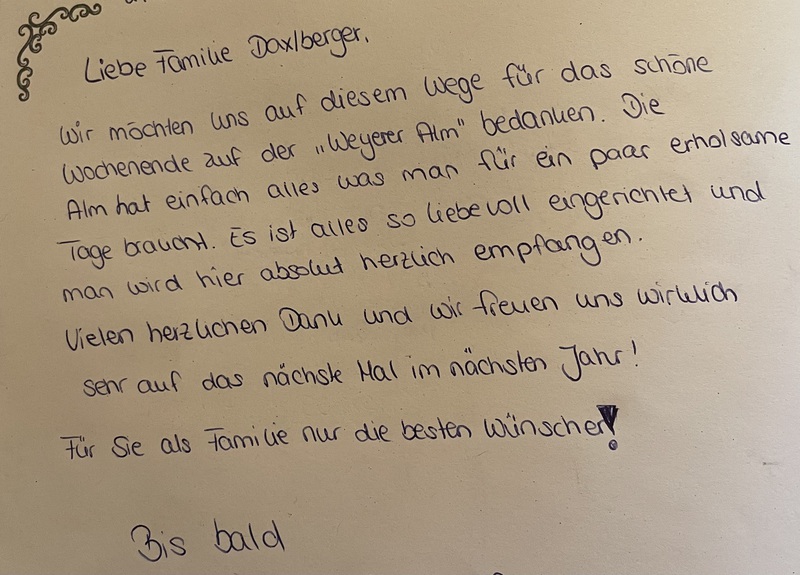 Liebe Familie Daxlberger,
wir möchten uns auf diesem Wege für das schöne
Wochenende auf der „Weyerer Alm" bedanken. Die
Alm hat einfach alles was man für ein paar erholsame
Tage braucht. Es ist alles so liebevoll eingerichtet und
man wird hier absolut herzlich empfangen.
Vielen herzlichen Dank und wir freuen uns wirklich
sehr auf das nächste Mal im nächsten Jahr!
Für Sie als Familie nur die besten Wünsche!
Bis bald